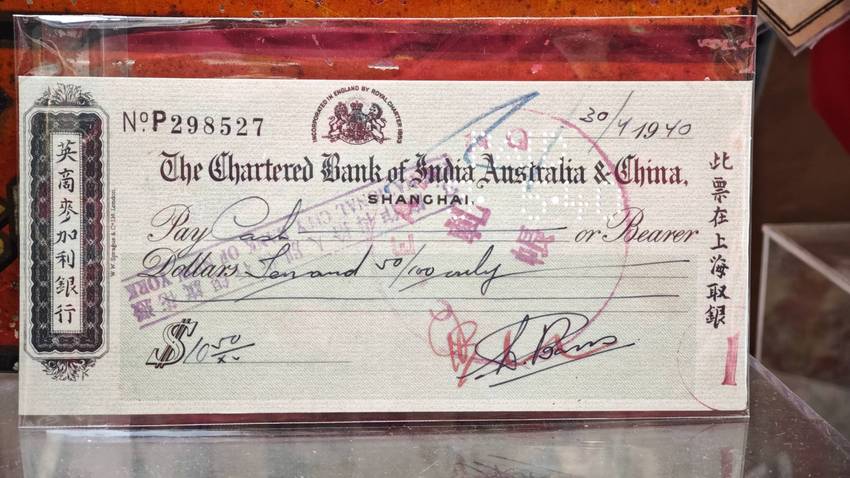 INCORPORATED IN ENGLAND BY ROYAL CHARTER 1853
No. P298527
30/4 1940
The Chartered Bank of India Australia & China,
SHANGHAI.
Pay Cash or Bearer
Dollars Ten and 50/100 only
$10 50/xx
英商麥加利銀行
此票在上海取銀
W.W. Sprague & Co Ld London.
NATIONAL CITY
BANK OF
YORK